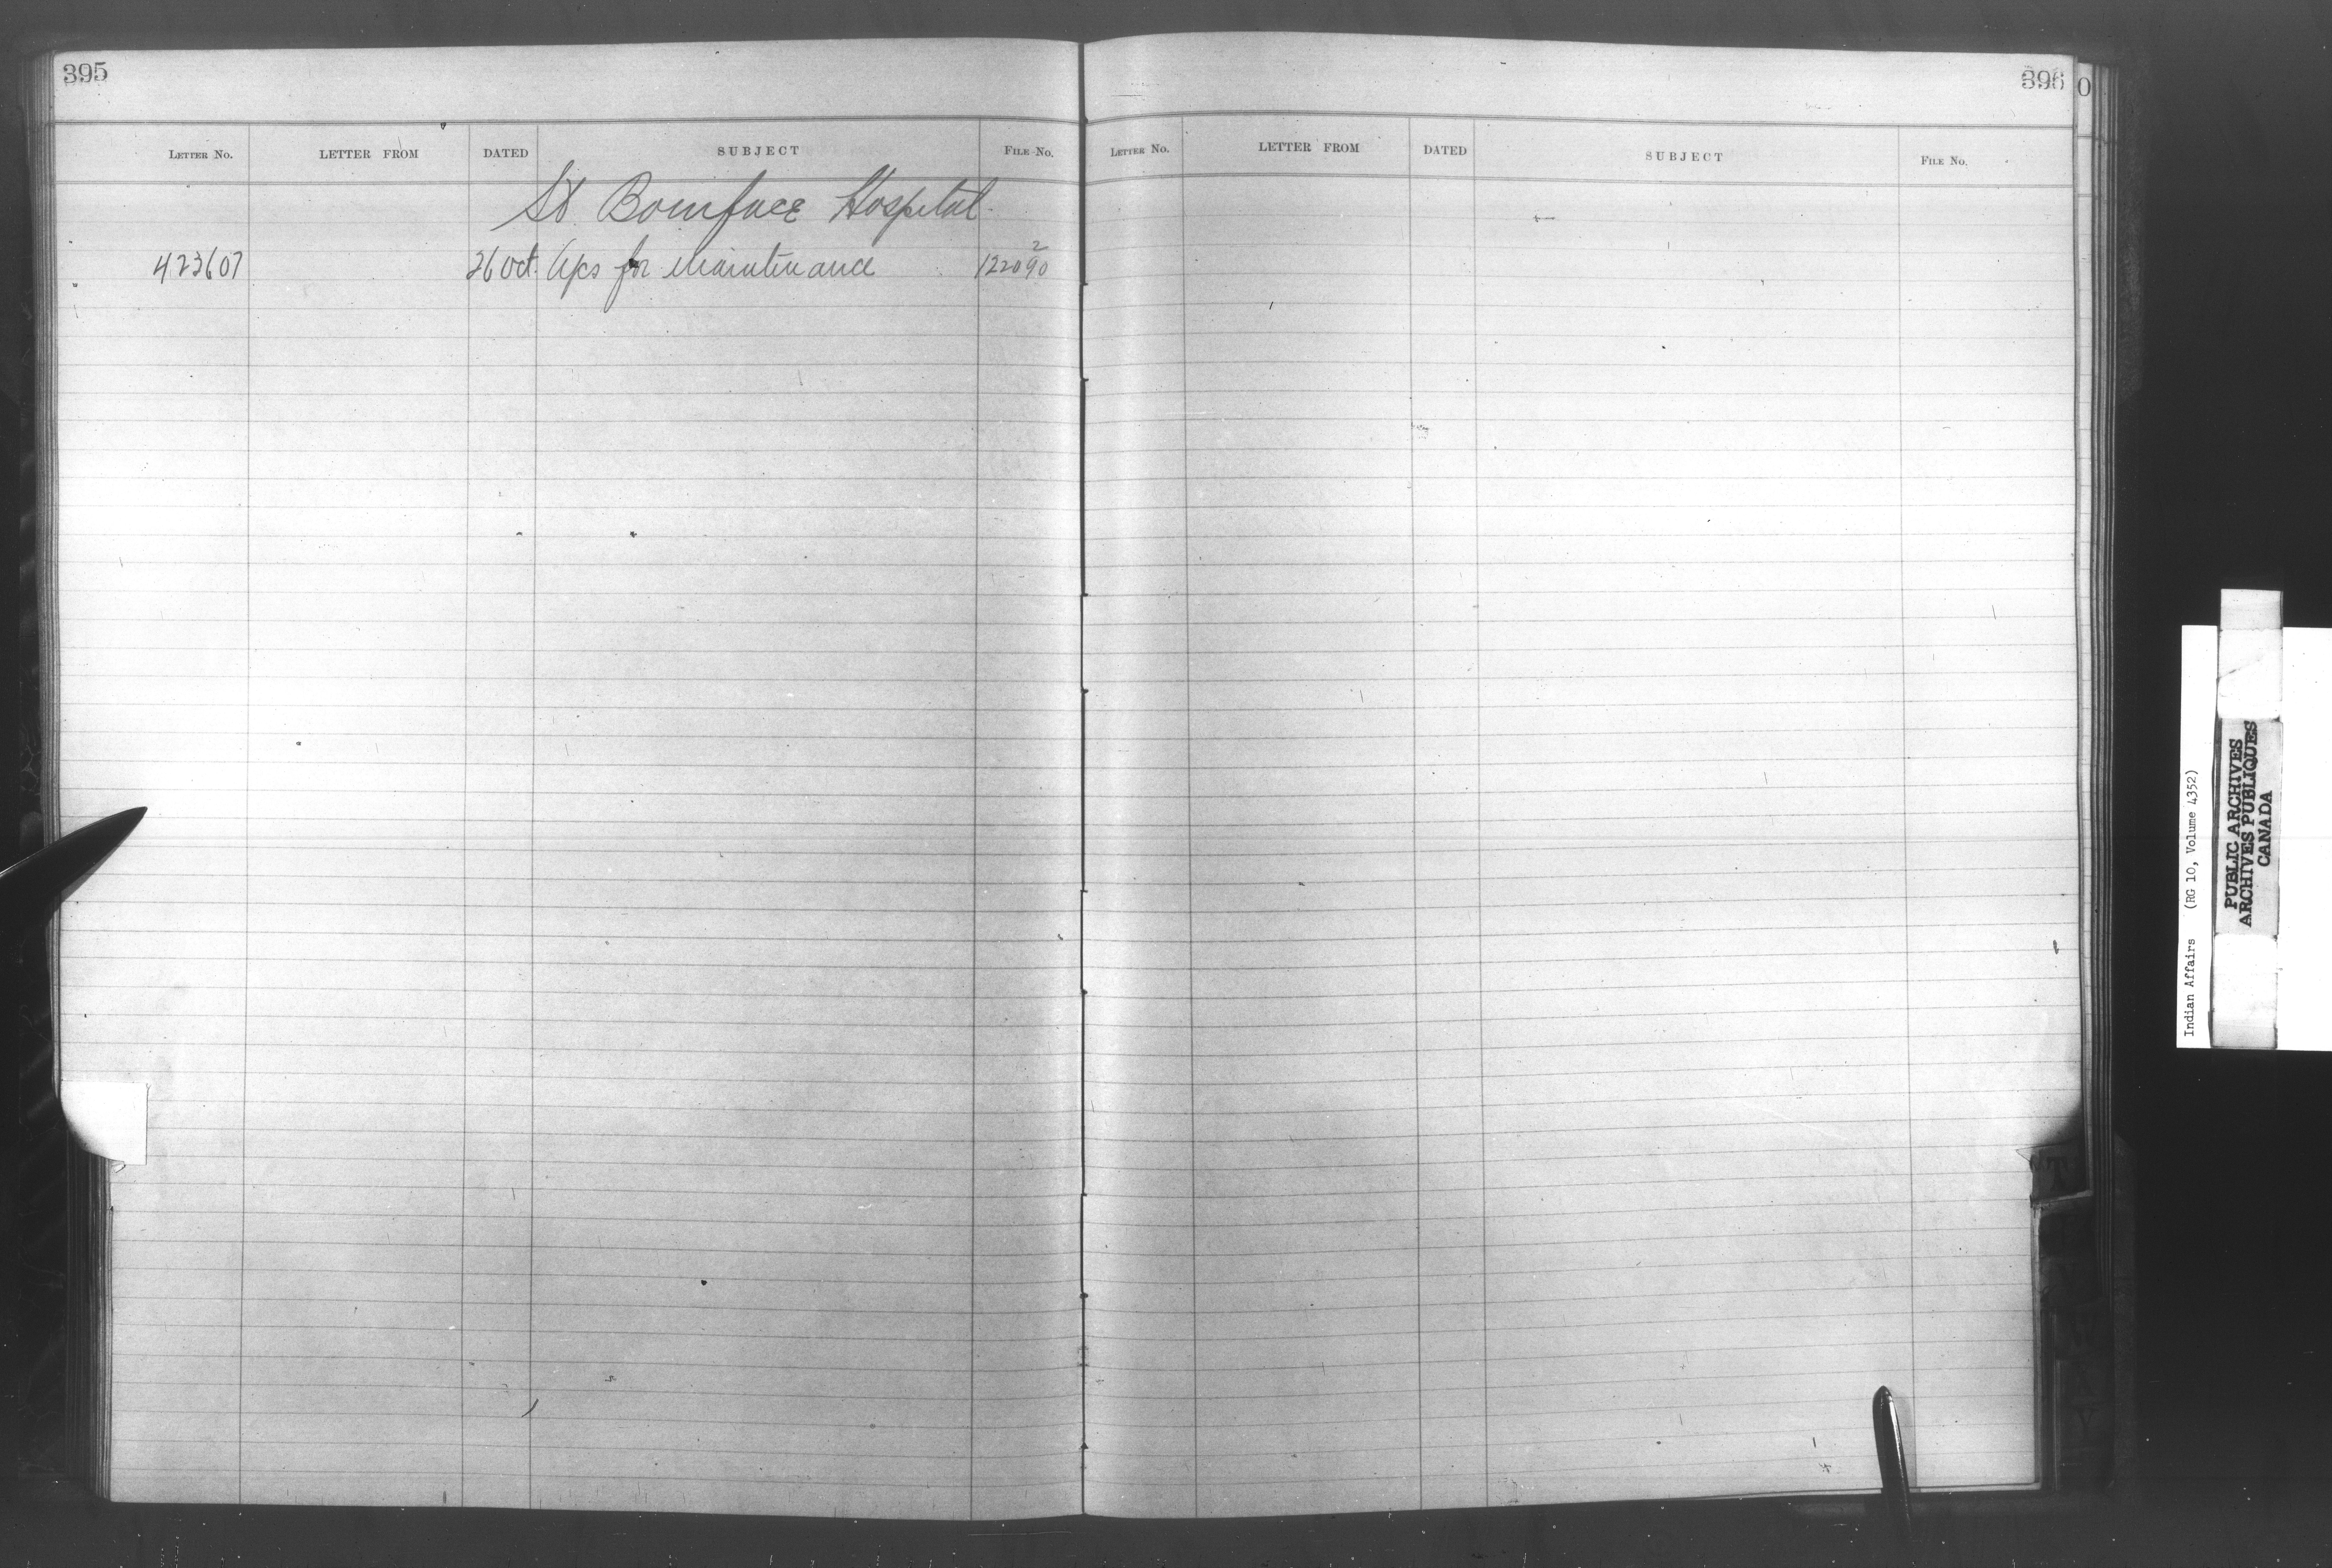 395
LETTER No. LETTER FROM DATED SUBJECT FILE No.
St Boniface Hospital
423607 26 Oct. A/cs for Maintenance 122090 2
396
LETTER No. LETTER FROM DATED SUBJECT FILE No.
0
T
W
Y
Indian Affairs (RG 10, Volume 4352)
PUBLIC ARCHIVES
ARCHIVES PUBLIQUES
CANADA